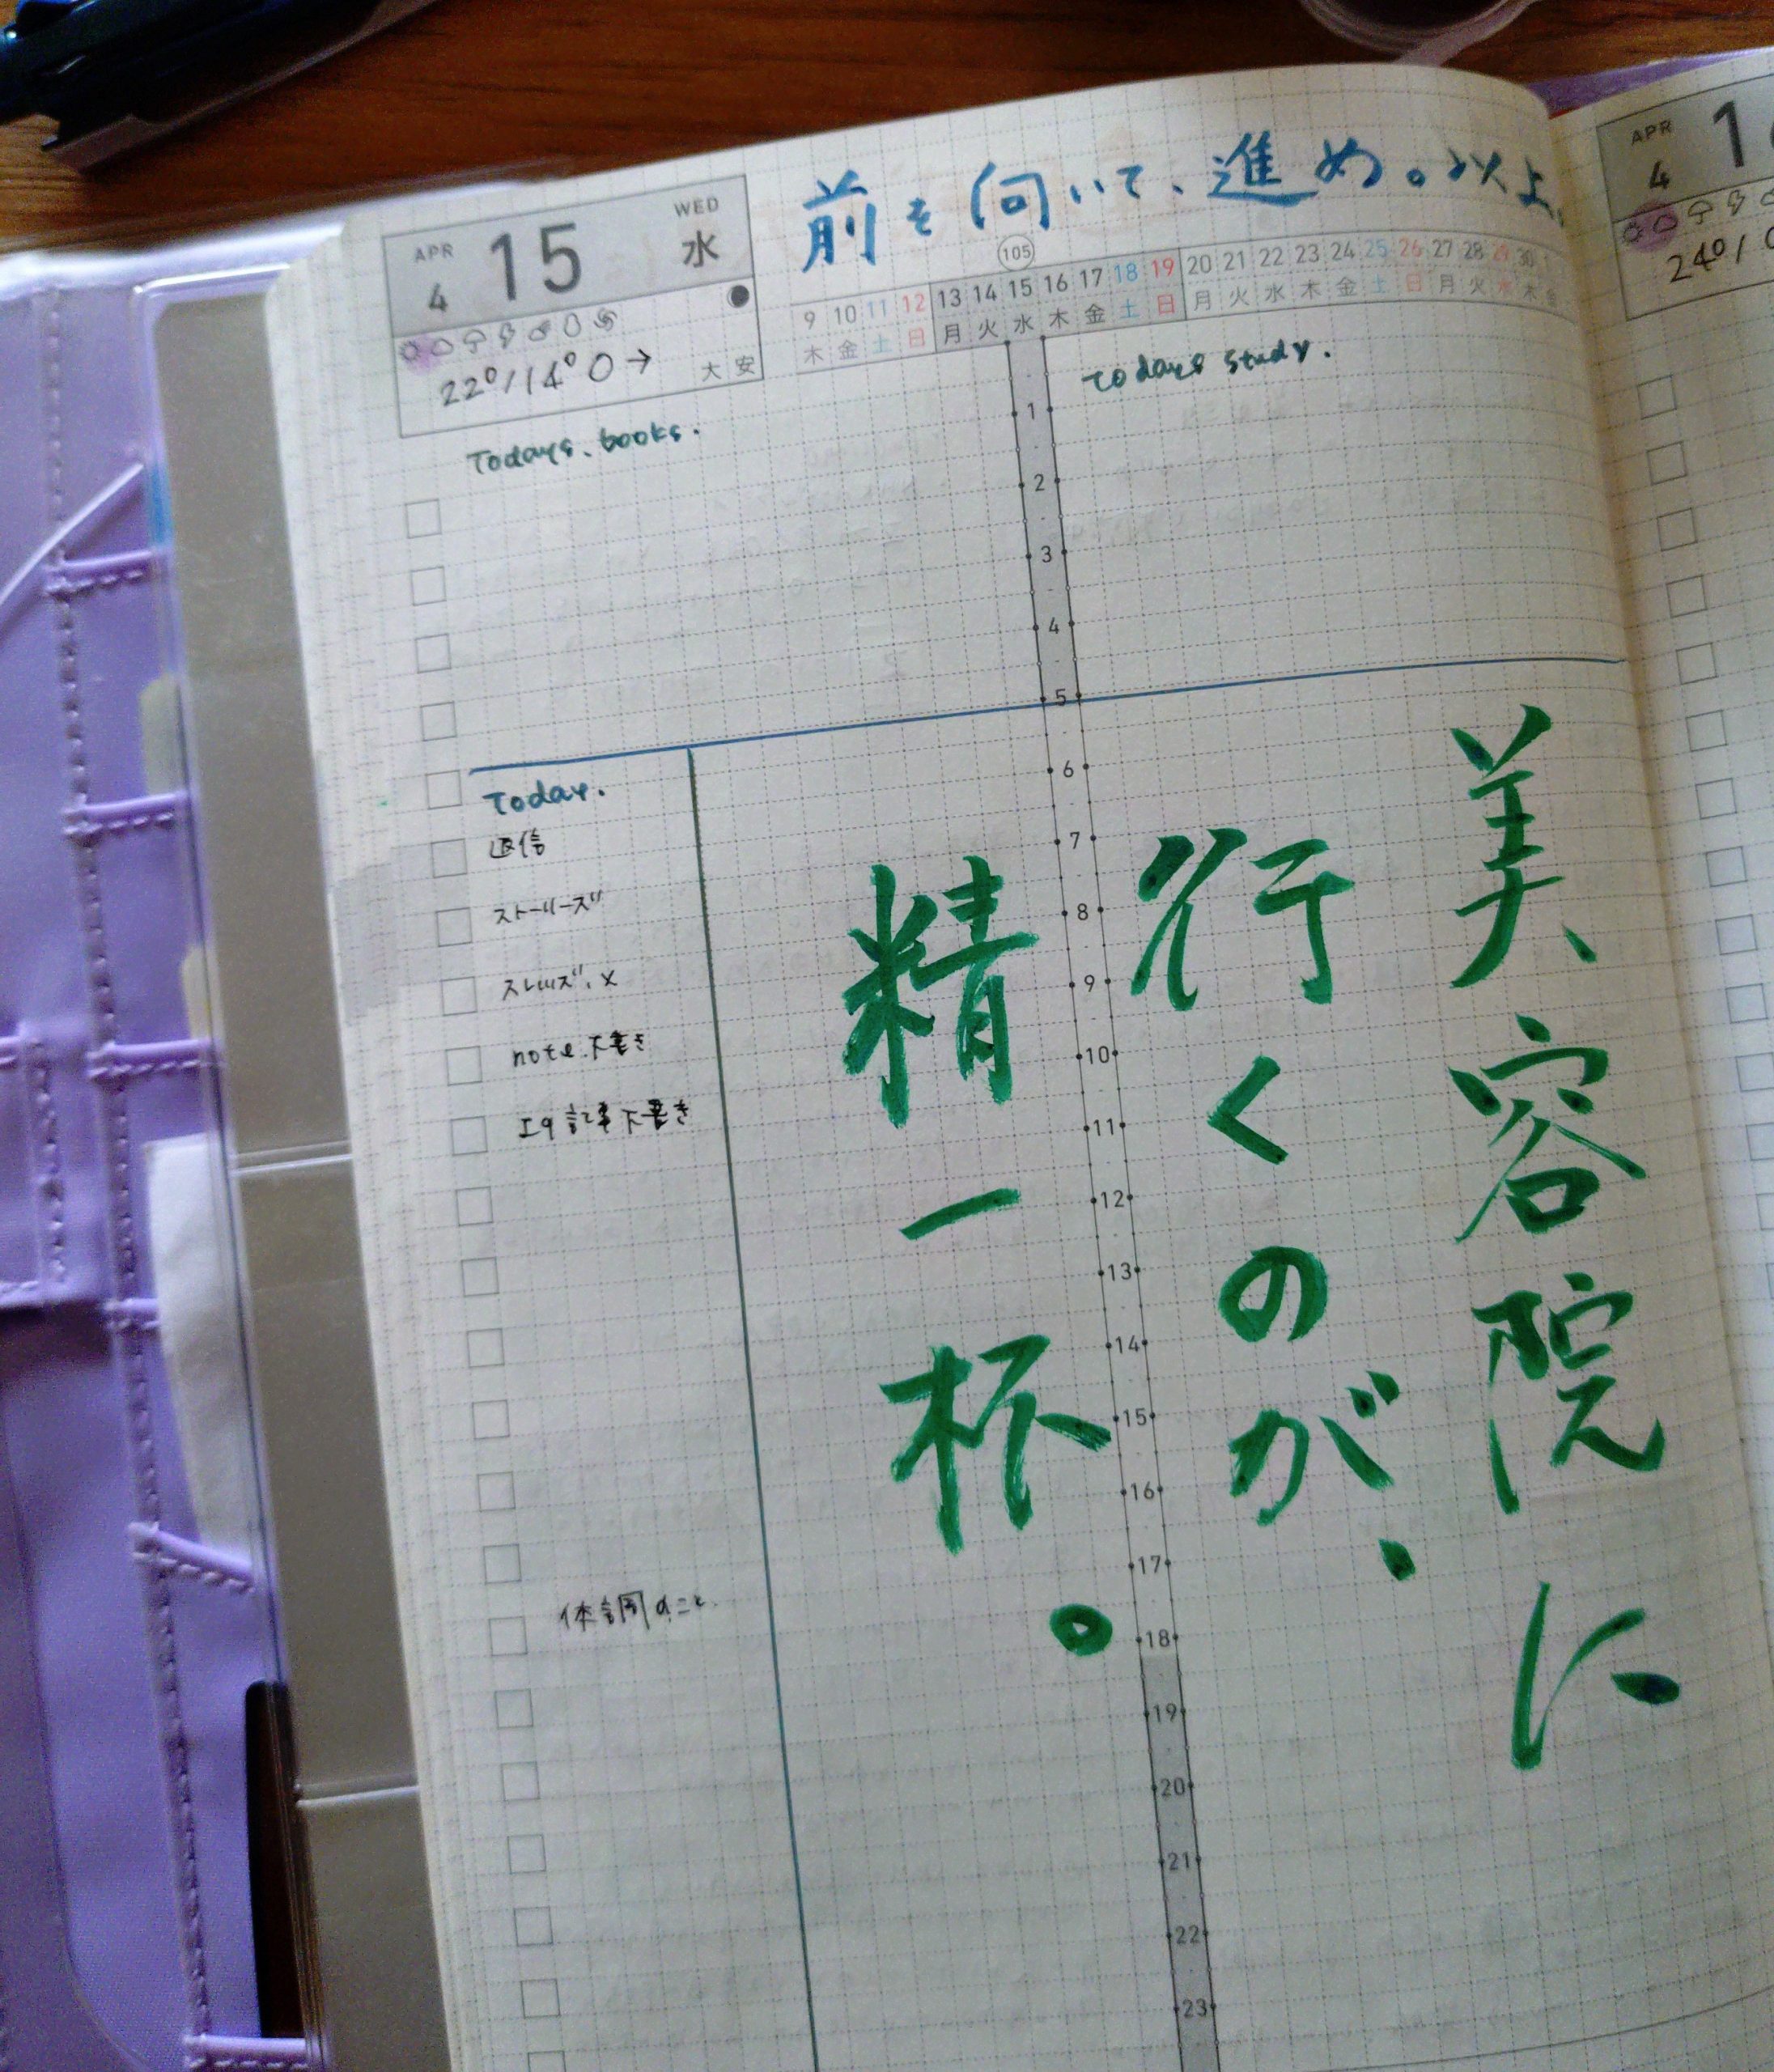 前を向いて、進め。以上。
APR 4 15 WED 水
22°/14° 0→
大安
105
9 10 11 12 13 14 15 16 17 18 19 20 21 22 23 24 25 26 27 28 29 30
木 金 土 日 月 火 水 木 金 土 日 月 火 水 木 金 土 日 月 火 水 木 金
Todays. books.
Todays study.
1
2
3
4
5
6
7
8
9
10
11
12
13
14
15
16
17
18
19
20
21
22
23
Today.
返信
ストーリーズ
スレッズ、X
note.下書き
記事下書き
体調のこと
美容院に
行くのが、
精一杯。
APR 4
24°/